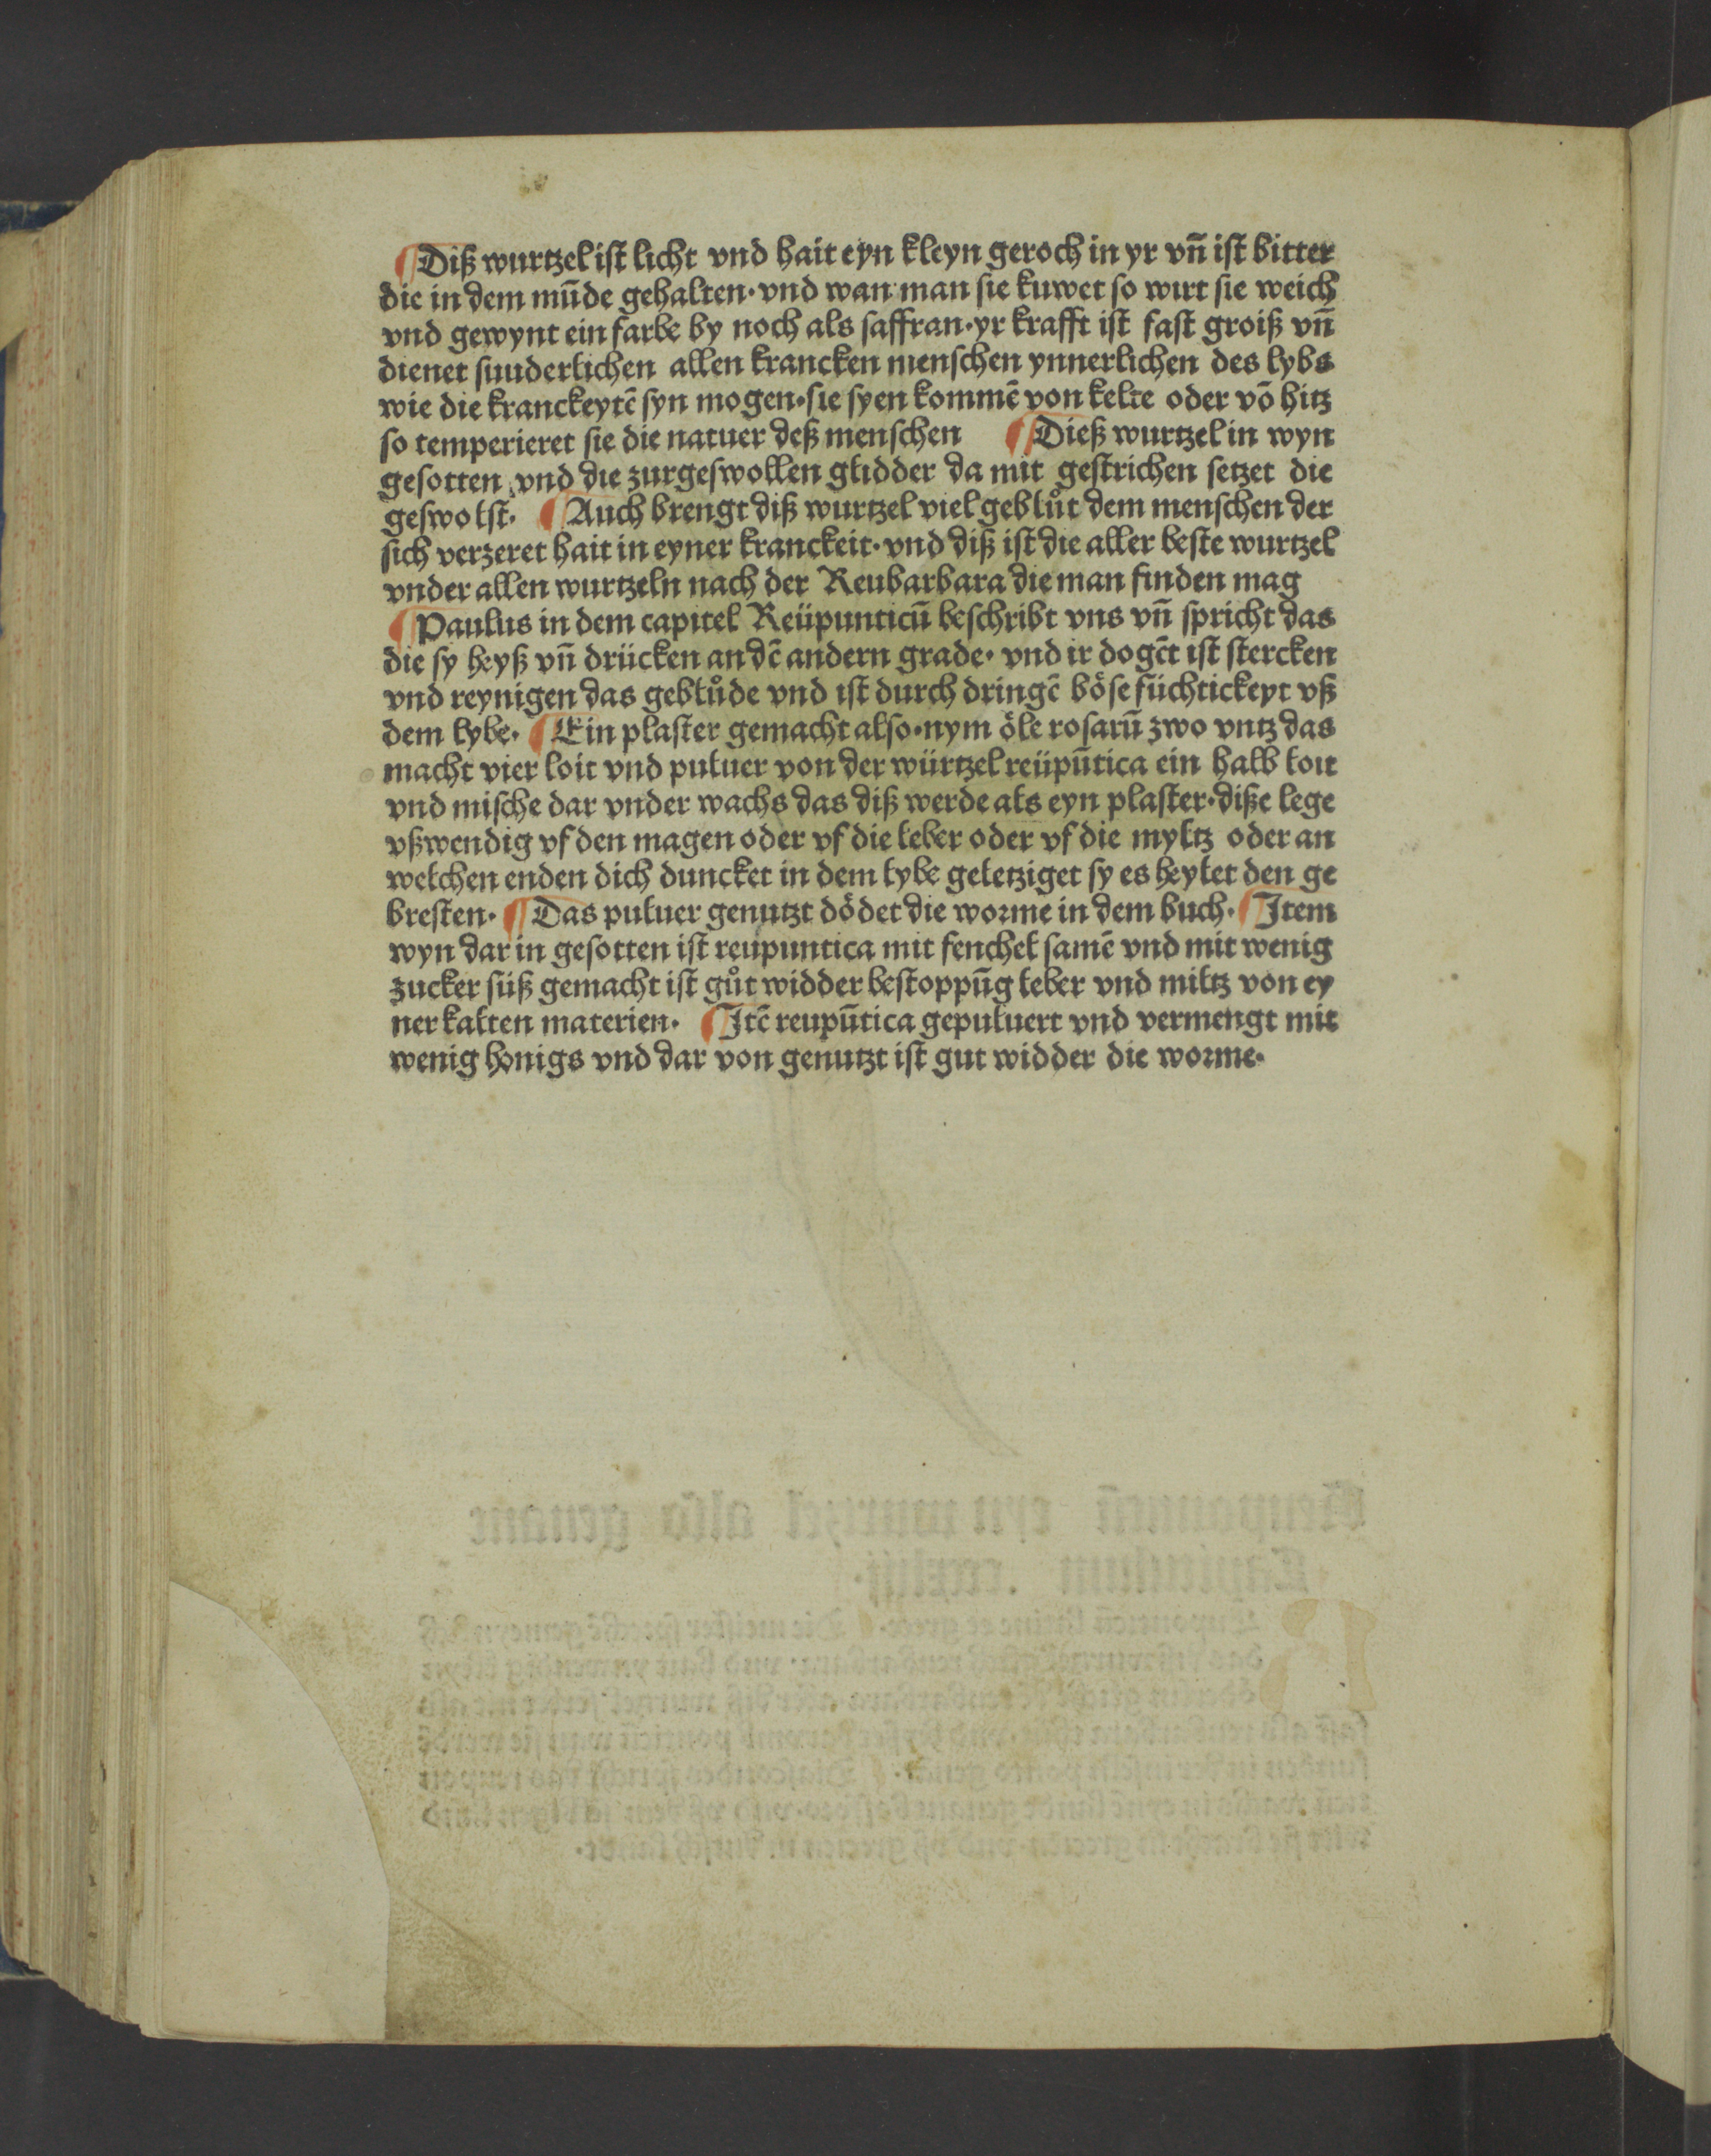 ¶ Diß wurtzel ist licht vnd hait eyn kleyn geroch in yr vn̄ ist bitter
die in dem mūde gehalten· vnd wan man sie kuwet so wirt sie weich
vnd gewynt ein farbe by noch als saffran· yr krafft ist fast groiß vn̄
dienet suuderlichen allen krancken menschen ynnerlichen des lybs
wie die kranckeytē syn mogen· sie syen kommē von kelte oder vō hitz
so temperieret sie die natuer deß menschen ¶ Dieß wurtzel in wyn
gesotten vnd die zurgeswollen glidder da mit gestrichen setzet die
geswolst· ¶ Auch brengt diß wurtzel viel geblůt dem menschen der
sich verzeret hait in eyner kranckeit· vnd diß ist die aller beste wurtzel
vnder allen wurtzeln nach der Reubarbara die man finden mag
¶ Paulus in dem capitel Reüpunticū beschribt vns vn̄ spricht das
die sy heyß vn̄ drücken an dē andern grade· vnd ir dogēt ist stercken
vnd reynigen das geblůde vnd ist durch dringē böse füchtickeyt vß
dem lybe· ¶ Ein plaster gemacht also· nym öle rosarū zwo vntz das
macht vier loit vnd puluer von der würtzel reüpūtica ein halb loit
vnd mische dar vnder wachs das diß werde als eyn plaster· diße lege
vßwendig vf den magen oder vf die leber oder vf die myltz oder an
welchen enden dich duncket in dem lybe geletziget sy es heylet den ge
bresten· ¶ Das puluer genutzt dödet die worme in dem buch· ¶ Item
wyn dar in gesotten ist reupuntica mit fenchel samē vnd mit wenig
zucker süß gemacht ist gůt widder bestoppūg leber vnd miltz von ey
ner kalten materien· ¶ Itē reupūtica gepuluert vnd vermengt mit
wenig honigs vnd dar von genutzt ist gut widder die worme·